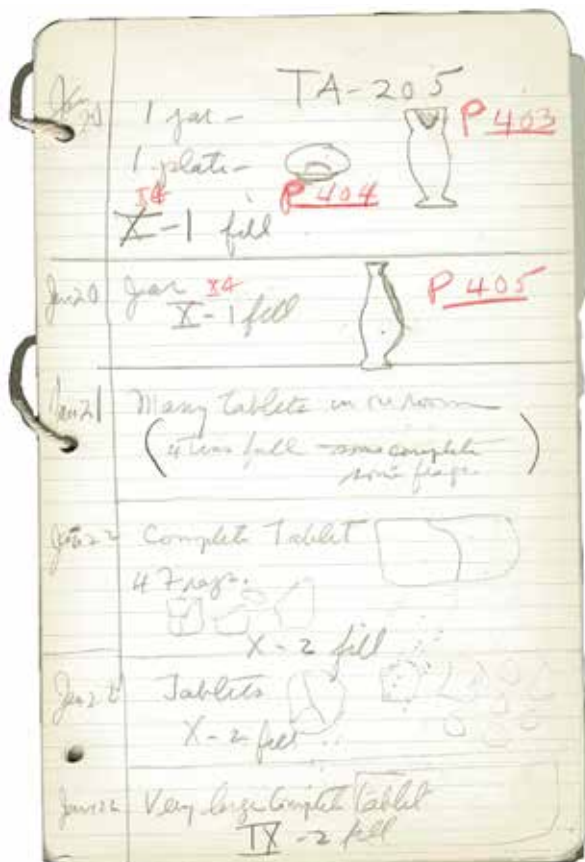 TA-205
Jan 20 1 jar - P 403
1 plate - P 404
X-1 fill
Jan 20 Jar P 405
X-1 fill
Jan 21 Many tablets in one room
(4 tins full - some complete
some frags.)
Jan 22 Complete Tablet
4 Frags.
X-2 fill
Jan 22 Tablets
X-2 fill
Jan 22 Very large Complete tablet
IX-2 fill